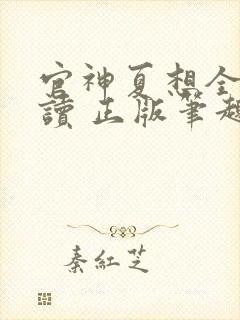 官神夏想全
讀 正版筆趣
秦紅芝